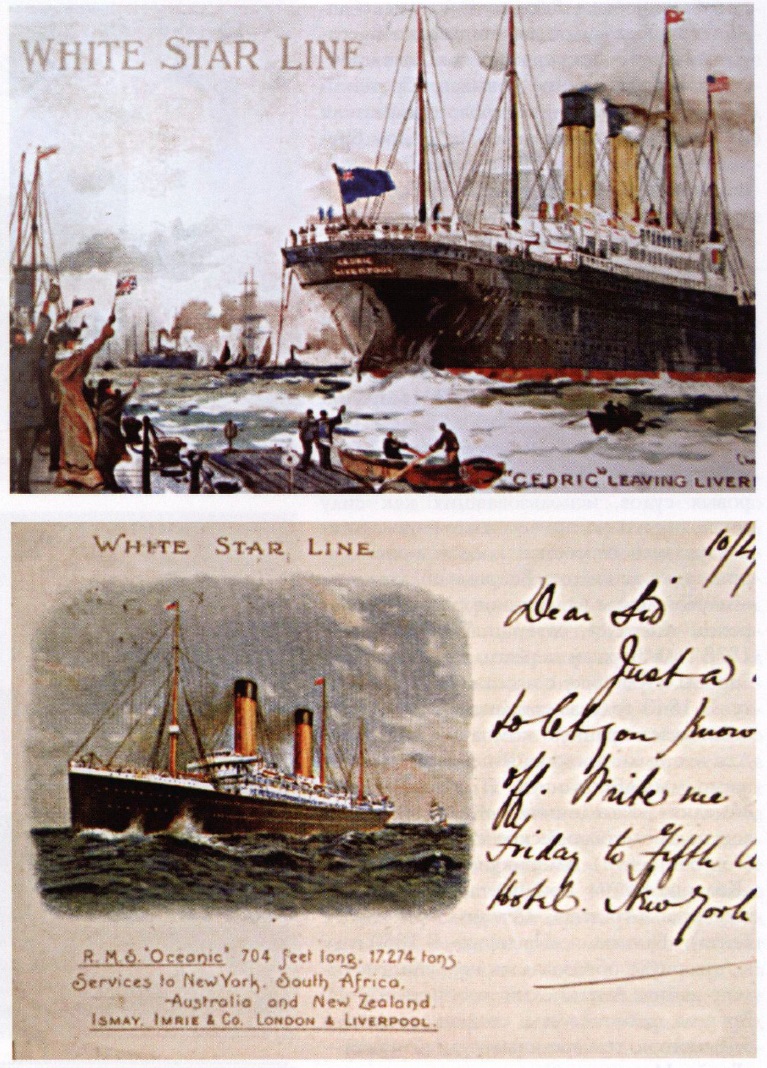 WHITE STAR LINE
CEDRIC
LIVERPOOL
"CEDRIC" LEAVING LIVER
WHITE STAR LINE
10/4/
Dear Sis
Just a
to let you know
off. Write me
Friday to Fifth
Hotel. New York
R.M.S. "Oceanic" 704 feet long. 17274 tons
Services to New York. South Africa.
Australia and New Zealand.
ISMAY, IMRIE & CO. LONDON & LIVERPOOL.